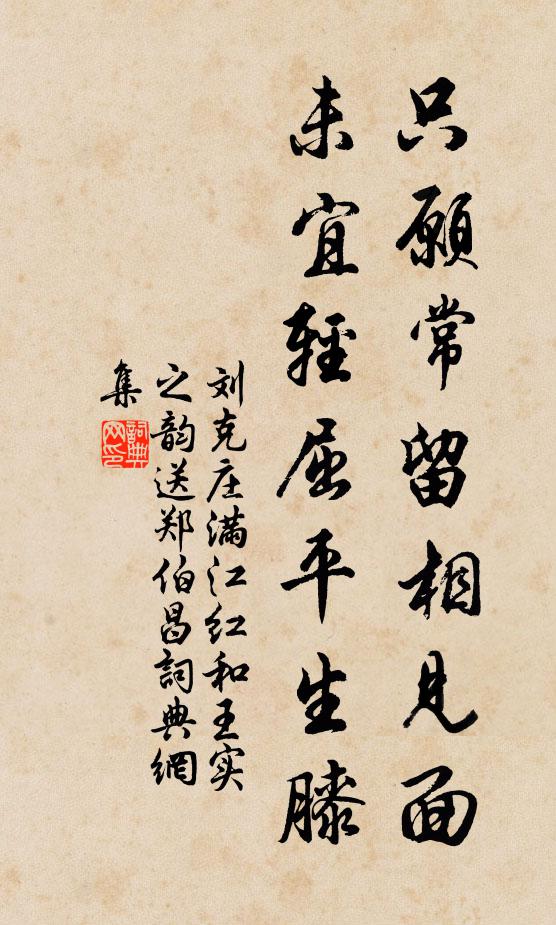 只願常留相見面
未宜輕屈平生膝
刘克庄满江红和王实
之韵送郑伯昌詞典網
集
詞典
网印